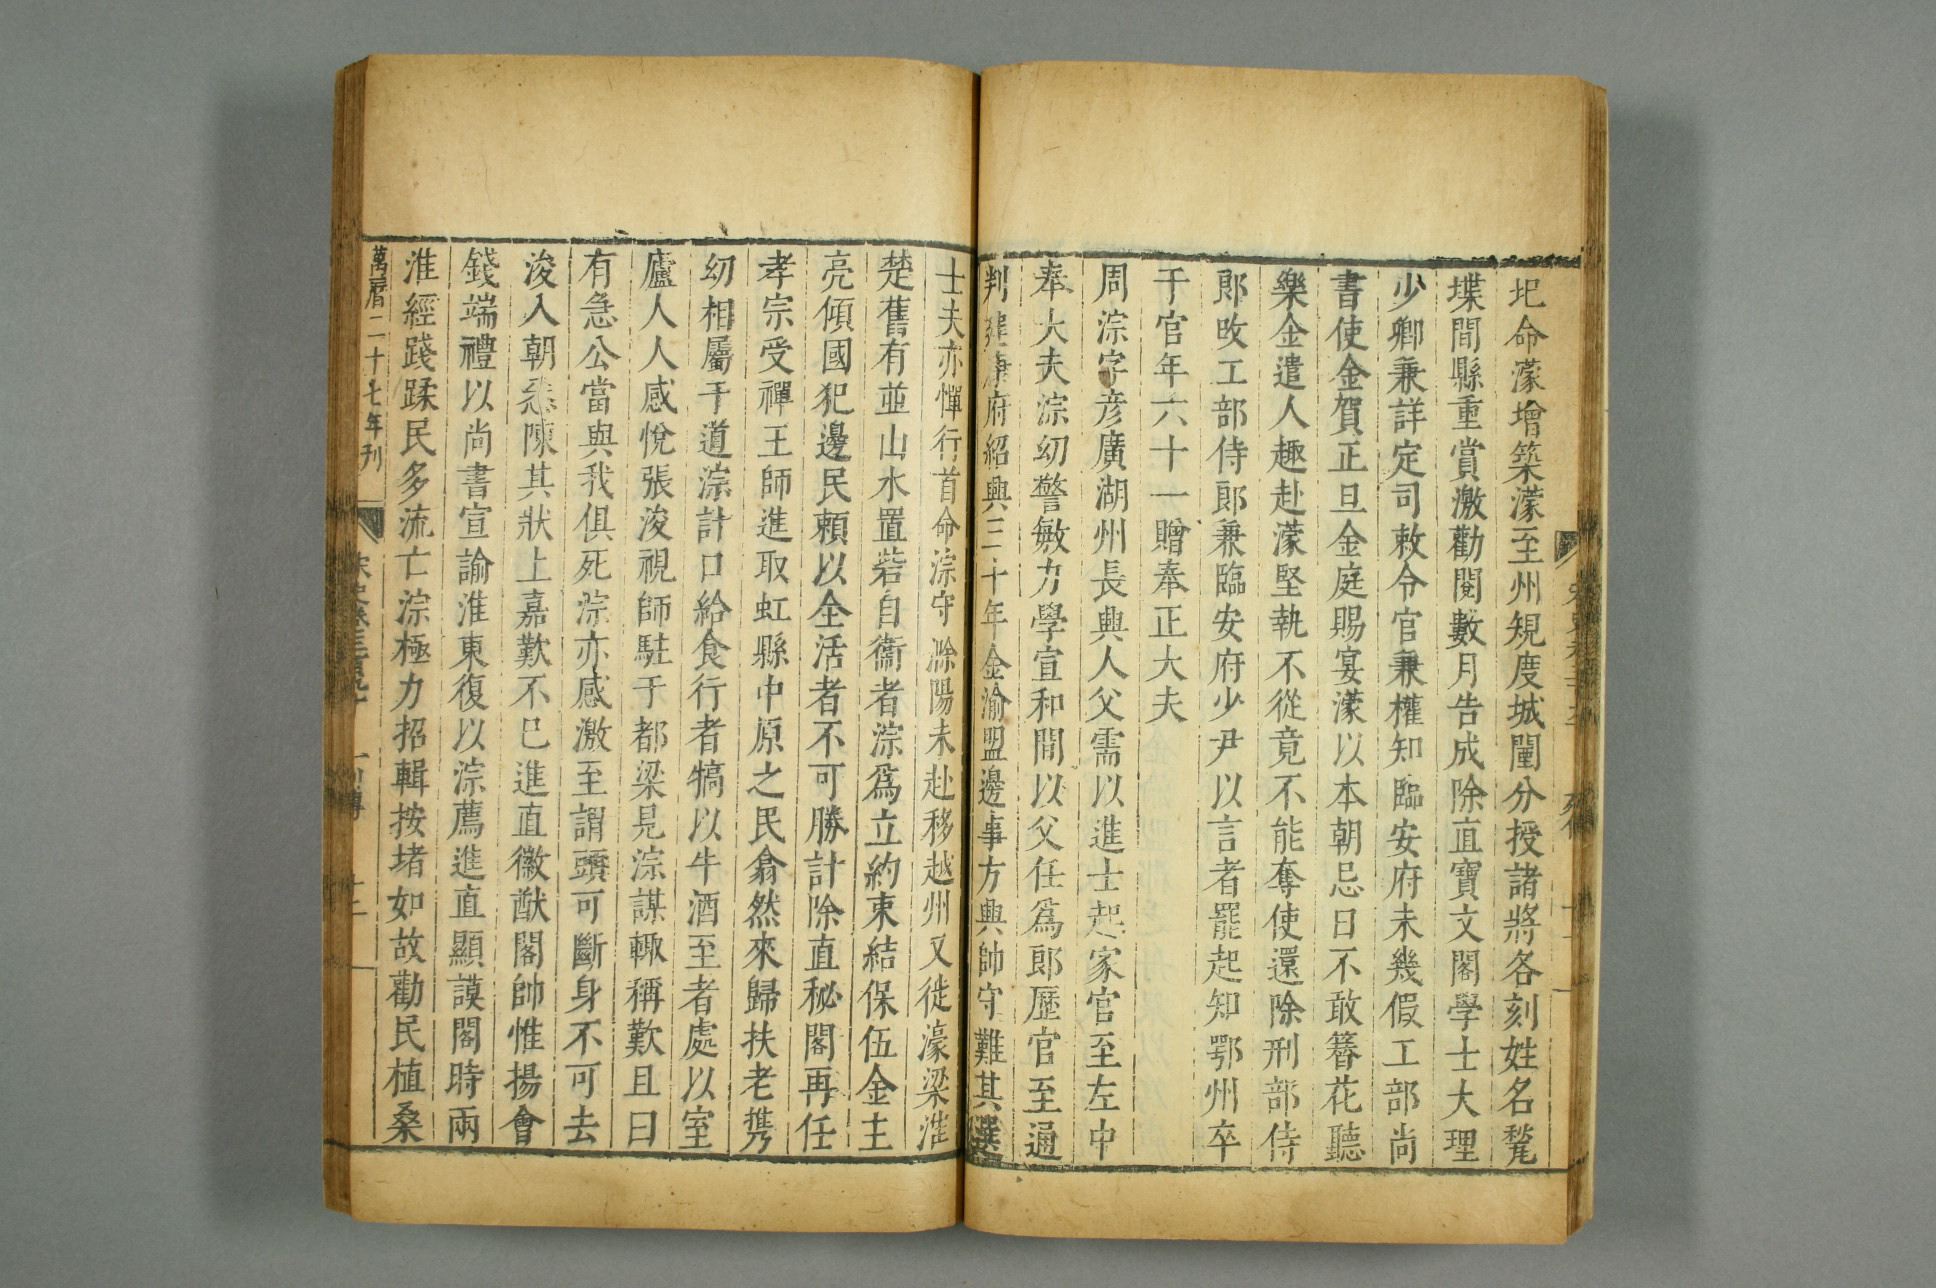 圯命濛增築濛至州規度城闉分授諸將各刻姓名甃
堞間縣重賞激勸閱數月告成除直寶文閣學士大理
少卿兼詳定司敕令官兼權知臨安府未幾假工部尚
書使金賀正旦金庭賜宴濛以本朝忌日不敢簪花聽
樂金遣人趣赴濛堅執不從竟不能奪使還除刑部侍
郎改工部侍郎兼臨安府少尹以言者罷起知鄂州卒
于官年六十一贈奉正大夫
周淙字彦廣湖州長興人父需以進士起家官至左中
奉大夫淙幼警敏力學宣和間以父任爲郎歷官至通
判建康府紹興三十年金渝盟邊事方興帥守難其選
士夫亦憚行首命淙守滁陽未赴移越州又徙濠梁淮
楚舊有並山水置砦自衞者淙爲立約束結保伍金主
亮傾國犯邊民賴以全活者不可勝計除直秘閣再任
孝宗受禪王師進取虹縣中原之民翕然來歸扶老携
幼相屬于道淙計口給食行者犒以牛酒至者處以室
廬人人感悅張浚視師駐于都梁見淙謀輙稱歎且曰
有急公當與我俱死淙亦感激至謂頭可斷身不可去
浚入朝悉陳其狀上嘉歎不已進直徽猷閣帥惟揚會
錢端禮以尚書宣諭淮東復以淙薦進直顯謨閣時兩
淮經踐蹂民多流亡淙極力招輯按堵如故勸民植桑
萬曆二十七年刊